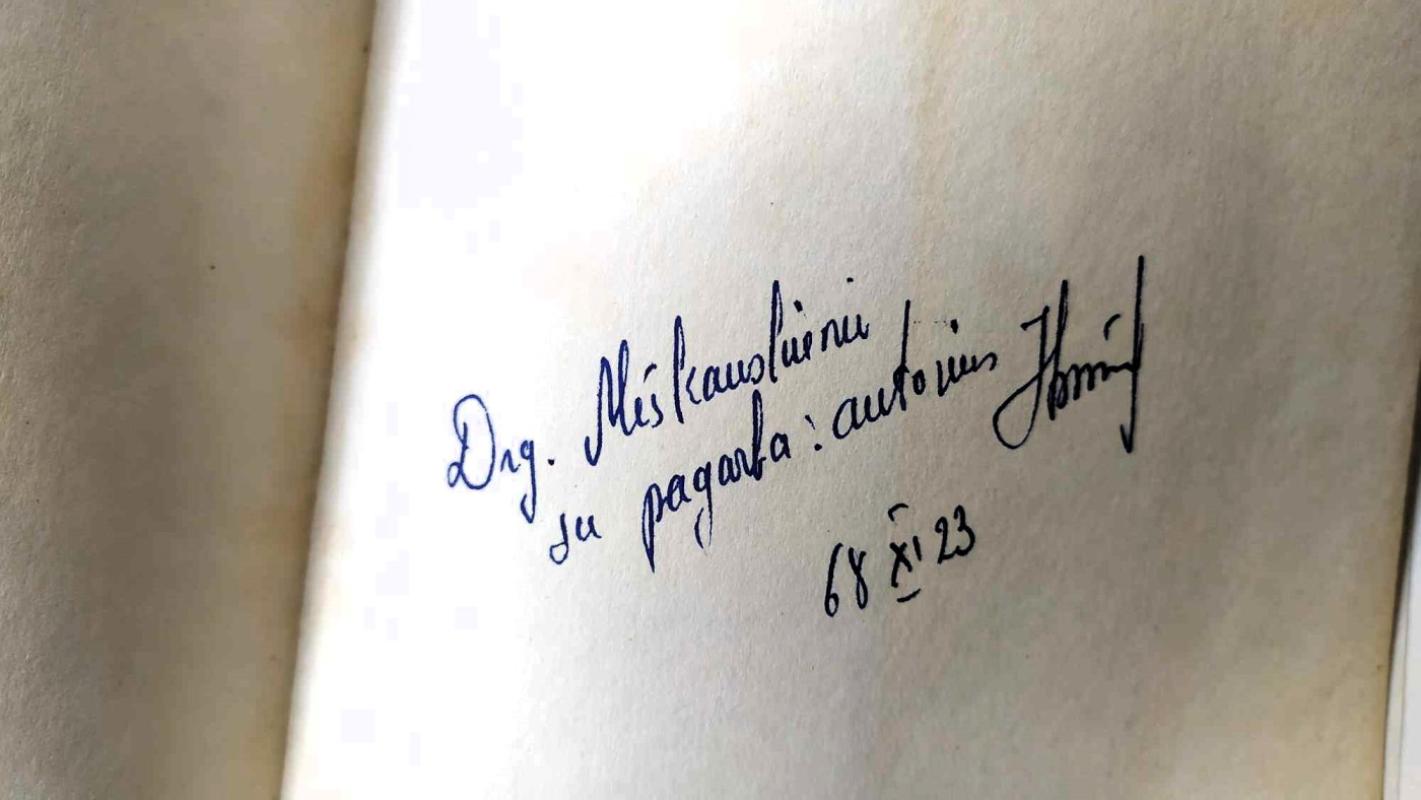 Drg. Miškauskienei
su pagarba: autorius
68 XI 23